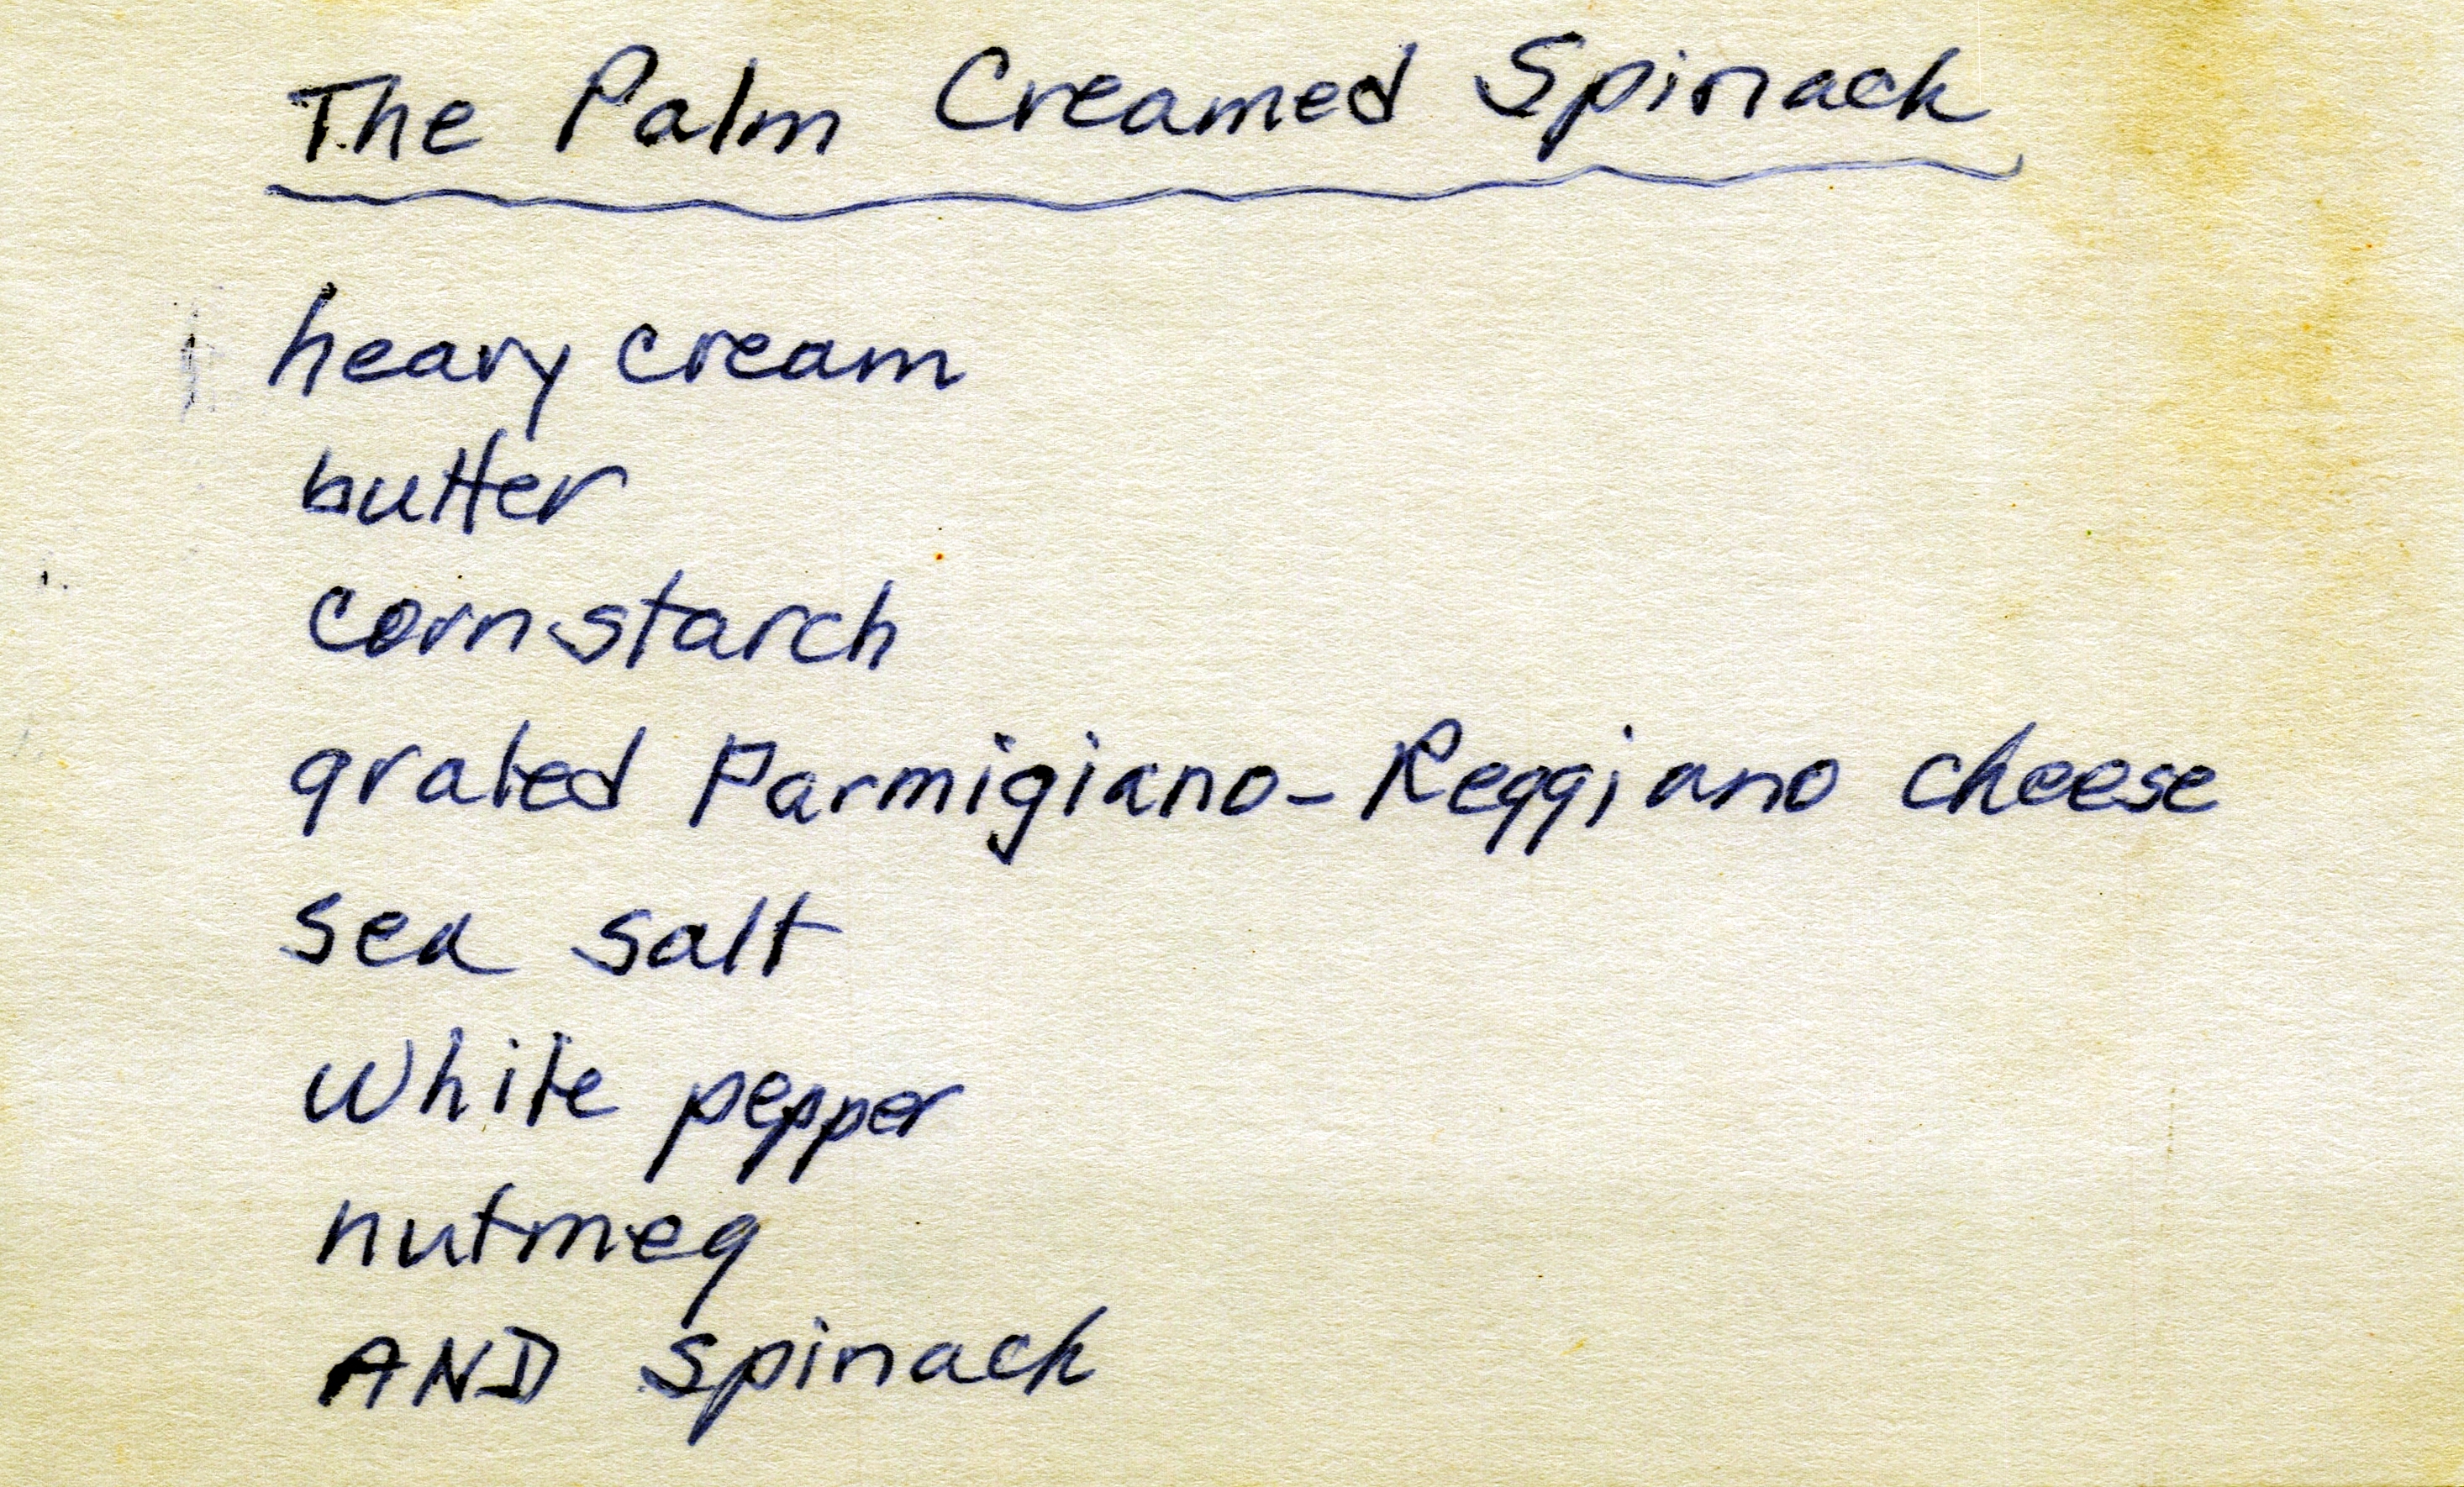 The Palm Creamed Spinach
heavy cream
butter
cornstarch
grated Parmigiano-Reggiano cheese
sea salt
White pepper
nutmeg
AND spinach